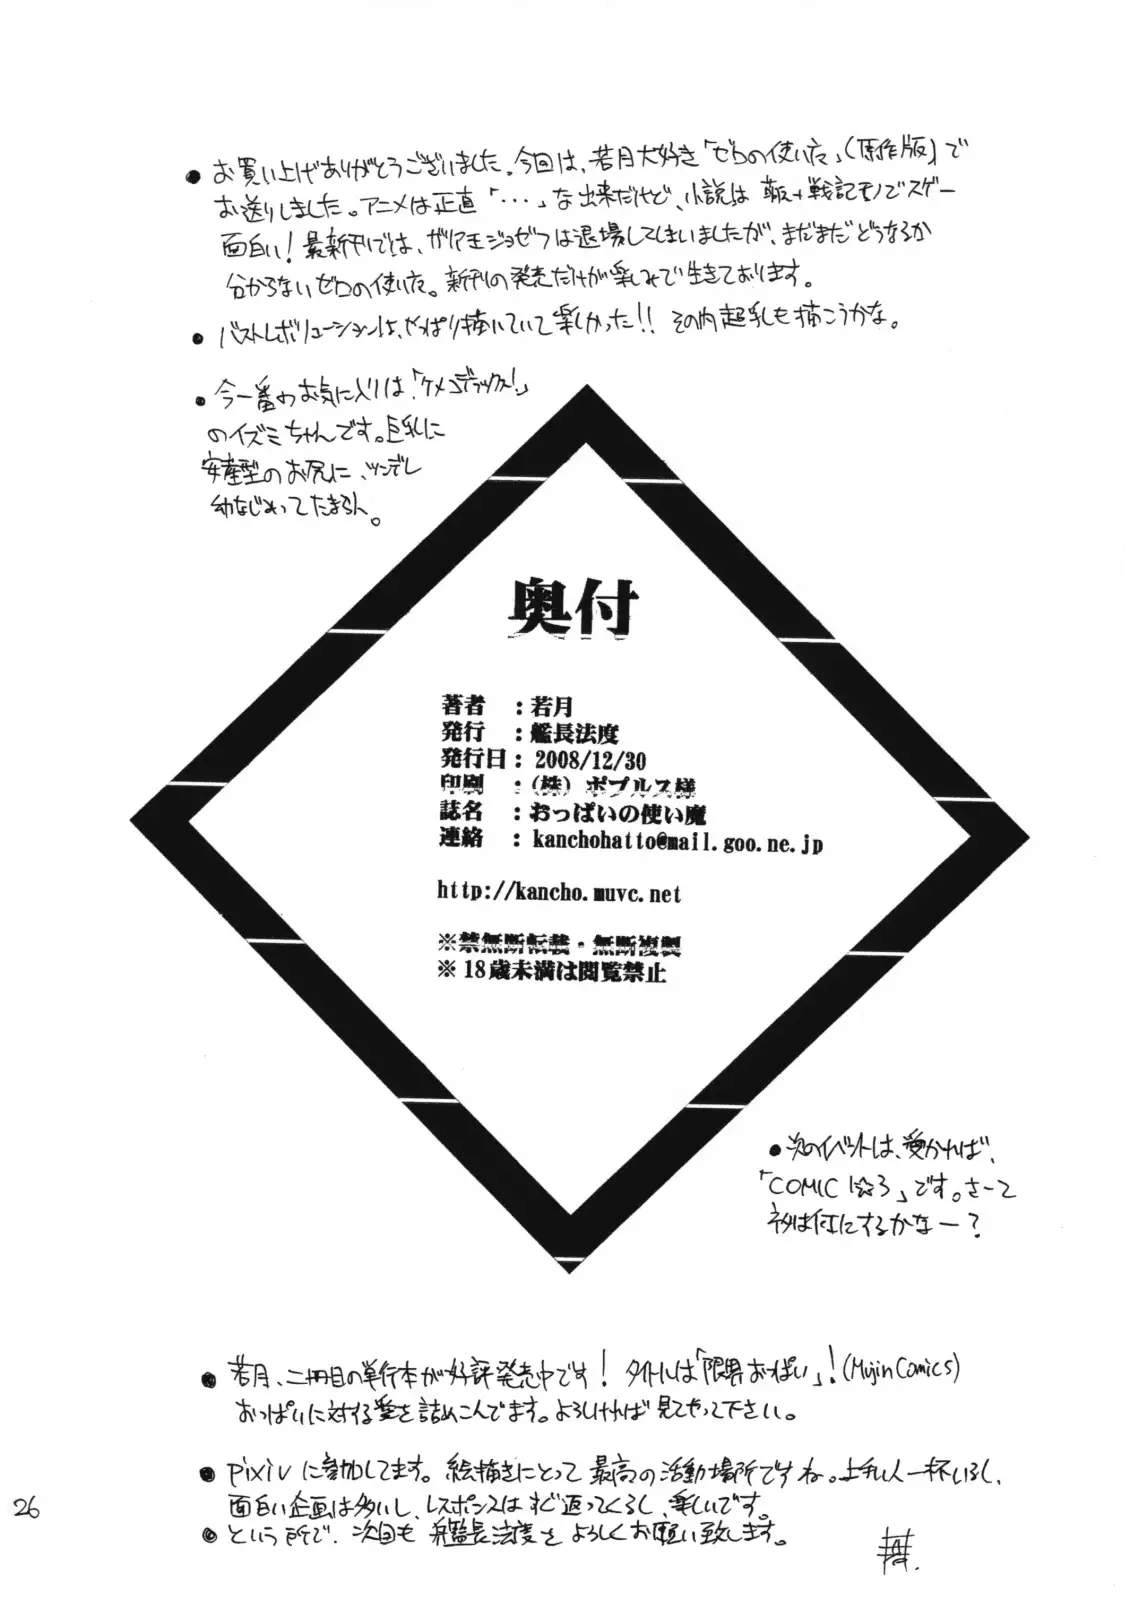 ● お買い上げありがとうございました。今回は、若月大好き「ゼロの使い魔」(原作版)で
お送りしました。アニメは正直「・・・」な出来だけど、小説は 戦記モノでスゲー
面白い！最新刊では、ガリア王ジョゼフは退場してしまいましたが、まだまだどうなるか
分からないゼロの使い魔。新刊の発売だけが楽しみで生きております。
● バストレボリューションは、やっぱり描いていて楽しかった!! その内超乳も描こうかな。
● 今一番のお気に入りは「ケメコデラックス!」
のイズミちゃんです。巨乳に
安産型のお尻に、ツンデレ
幼なじみってたまらん。
奥付
著者　：若月
発行　：艦長法度
発行日：2008/12/30
印刷　：(株)ポプルス様
誌名　：おっぱいの使い魔
連絡　：kanchohatto@mail.goo.ne.jp
http://kancho.muvc.net
※禁無断転載・無断複製
※18歳未満は閲覧禁止
● 次のイベントは、受かれば、
「COMIC1☆3」です。さーて
ネタは何にするかなー？
● 若月、二冊目の単行本が好評発売中です！ タイトルは「限界おっぱい」！(Mujin Comics)
おっぱいに対する愛を詰めこんでます。よろしければ見てやって下さい。
● pixivに参加してます。絵描きにとって最高の活動場所ですね。上手い人一杯いるし、
面白い企画は多いし、レスポンスはすぐ返ってくるし、楽しいです。
● という所で、次回も艦長法度をよろしくお願い致します。
26